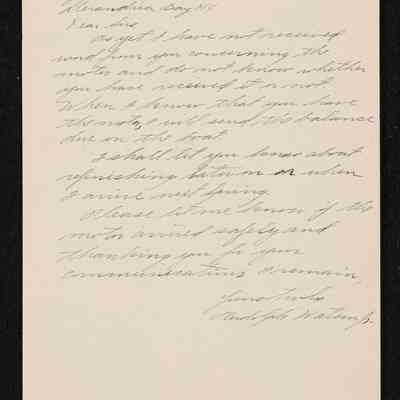 Alexandria Bay NY
Dear Sir,
As yet I have not received
word from you concerning the
motor and do not know whether
you have received it or not.
When I know that you have
the motor, I will send the balance
due on the boat.
I shall let you know about
refinishing later on or when
I arrive next Spring.
Please let me know if the
motor arrived safely and
thanking you for your
communications I remain,
Yours truly
Rudolph